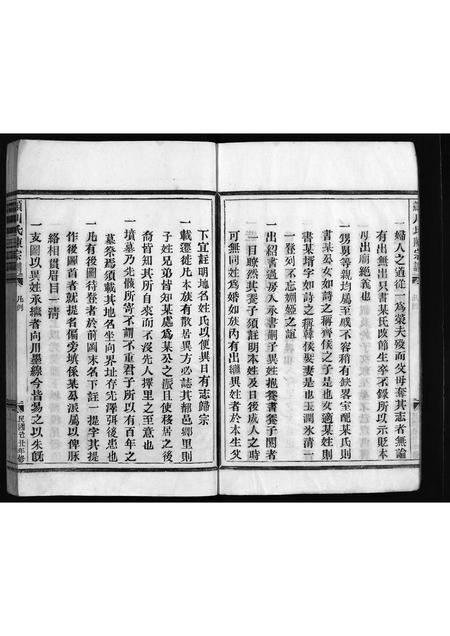 一婦人之道從一為榮夫歿而父母奪其志者無論
有出無出只書某氏改節生卒不錄所以示貶本
母出廟絕義也
一甥舅等親均屬至戚不容稍有缺畧室配某氏則
書某公女如詩之稱齊侯之子是也女適某姓則
書某壻字如詩之稱韓侯娶妻是也玉潤氷清一
一登列不忘婣婭之誼
一出紹書過房入承書嗣子異姓抱養書養子閱者
一目瞭然其養子須註明本姓及日後成人之時
可無同姓為婚如族內有出繼異姓者於本生父
下宜註明地名姓氏以便異日有志歸宗
一載遷徙凡本族有散居異方必誌其都邑鄉里則
子姓兄弟皆知某處為某公之派且使移居之後
裔皆知其所自來而不沒先人擇里之至意也
一墳墓乃先骸所寄不謂不重君子所以有百年之
墓祭焉須載其地名坐向界址存先澤弭後患也
一凡有後圖待登者於前圖末名下註一提字其提
作後圖首者就提名偏旁填係某公派屬以俾脉
絡相貫眉目一清
一支圖以異姓承繼者向用墨線今皆易之以朱旣
凡例
民國 年修